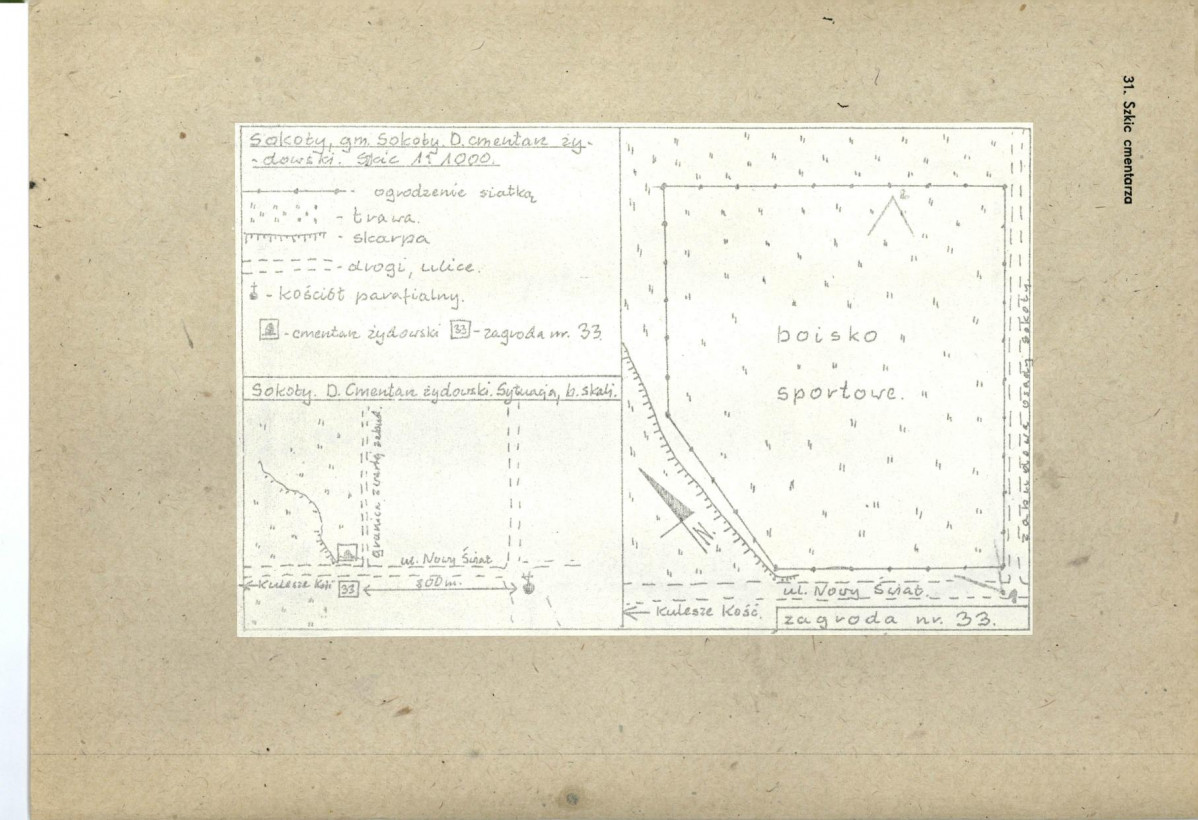 31. Szkic cmentarza
Sokoły, gm. Sokoły. D. cmentarz ży-
-dowski. Szkic 1:1000.
- ogrodzenie siatką
- trawa.
- skarpa
- drogi, ulice.
- kościół parafialny.
- cmentarz żydowski 33 - zagroda nr. 33.
Sokoły. D. Cmentarz żydowski. Sytuacja, b. skali.
granica zwartej zabud.
ul. Nowy Świat
Kulesze Koś 33 300 m.
2
boisko
sportowe.
zabudowa osady Sokoły
N.
ul. Nowy Świat.
Kulesze Kość.
zagroda nr. 33.